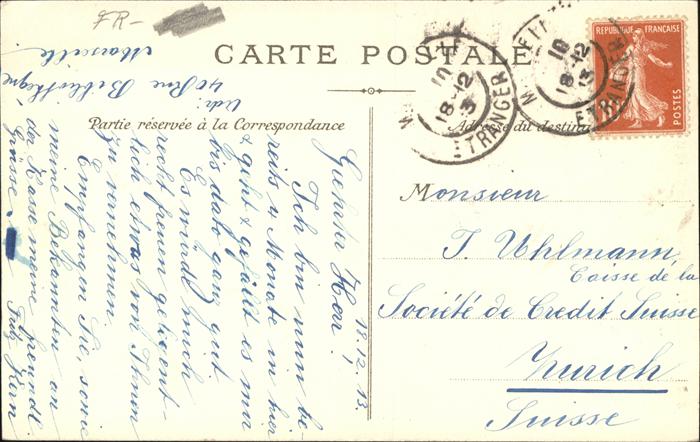 FR-
CARTE POSTALE
Partie réservée à la Correspondance
Adresse du destinataire
REPUBLIQUE FRANÇAISE
POSTES
18-12
13
ETRANGER
18-12
13
ETRANGER
Monsieur
J. Uhlmann,
Caisse de la
Société de Credit Suisse
Zurich
Suisse
18.12.13.
Geehrter Herr!
Ich bin nun be-
reits 4 Monate in hier
& geht & gefällt es mir
bis dato ganz gut.
Es würde mich
recht freuen gelegent-
lich etwas von Ihnen
zu vernehmen.
Empfangen Sie, sowie
meine Bekannten an
der Kasse meine freundl.
Grüsse. Fritz Kern
Adr:
40 Rue Bibliothèque
Marseille.